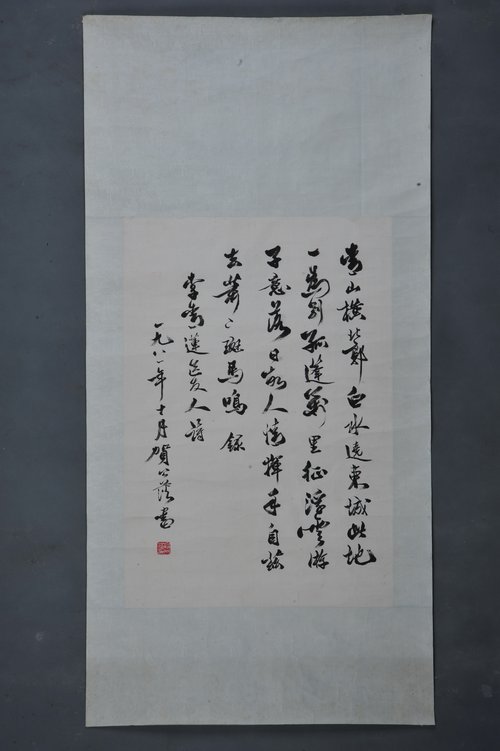 青山橫北郭白水遶東城此地
一為別孤蓬萬里征浮雲游
子意落日故人情揮手自茲
去蕭々斑馬鳴 錄
李青蓮送友人詩
一九八一年十月賀公書